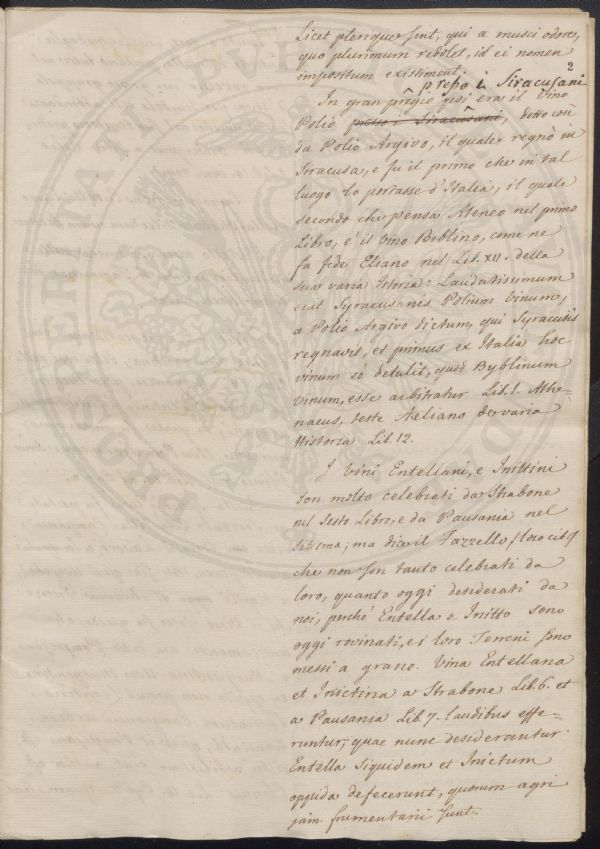 2
Licet plerique sint, qui a musci odore,
quo plurimum redolet, id ei nomen
impositum existiment.
presso i Siracusani
In gran pregio poi era il Vino
Polio presso i Siracusani, detto così
da Polio Argivo, il quale regnò in
Siracusa, e fu il primo che in tal
luogo lo portasse d'Italia, il quale
secondo che pensa Ateneo nel primo
Libro, è il Vino Biblino, come ne
fa fede Eliano nel Lib. XII. della
sua varia Istoria: Laudatissimum
Syracusanis Polium Vinum,
a Polio Argivo dictum, qui Syracusis
regnavit, et primus ex Italia hoc
vinum eò detulit, quod Byblinum
vinum, esse arbitratur Lib. 1. Athe=
naeus, teste Aeliano de varia
Historia Lib. 12.
I Vini Entellani, e Inittini
son molto celebrati da Strabone
nel Sesto Libro, e da Pausania nel
settimo; ma dice il Fazzello /loco cit/
che non son tanto celebrati da
loro, quanto oggi desiderati da
noi, perchè Entella e Initto sono
oggi rovinati, e i loro Terreni sono
messi a grano. Vina Entellana
et Inictina a Strabone Lib. 6. et
a Pausania Lib. 7. laudibus effe=
runtur; quae nunc desiderantur.
Entella siquidem et Inictum
oppida defecerunt, quorum agri
jam frumentarii sunt.